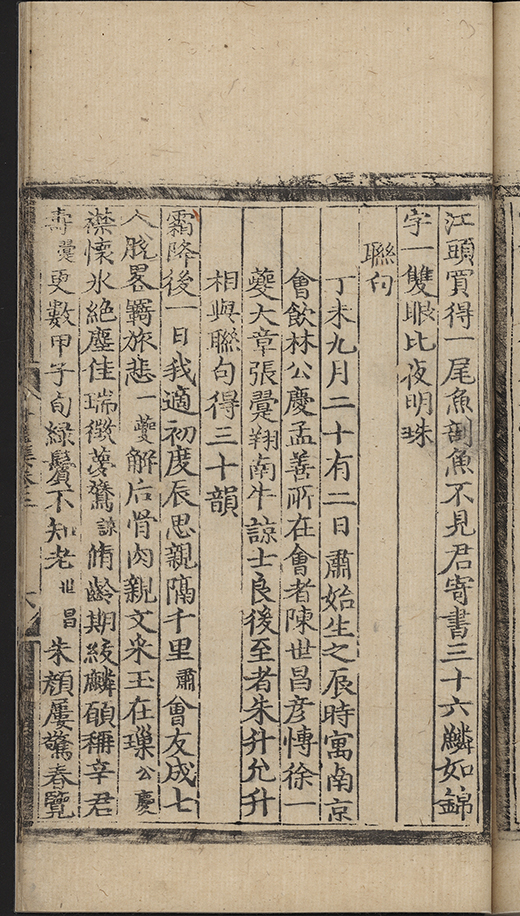 江頭買得一尾魚剖魚不見君寄書三十六鱗如錦
字一雙眼比夜明珠
聯句
丁未九月二十有二日肅始生之辰時寓南京
會飲林公慶孟善所在會者陳世昌彥博徐一
夔大章張翨翔南牛諒士良後至者朱升允升
相與聯句得三十韻
霜降後一日我適初度辰思親隔千里肅會友成七
人脫畧羇旅悲一夔解后骨肉親文采玉在璞公慶
襟懷氷絶塵佳瑞徵夢鷟諒脩齡期紱麟頤稱辛君
壽翨更數甲子旬緑鬢不知老世昌朱顏屢驚春覽
集卷三